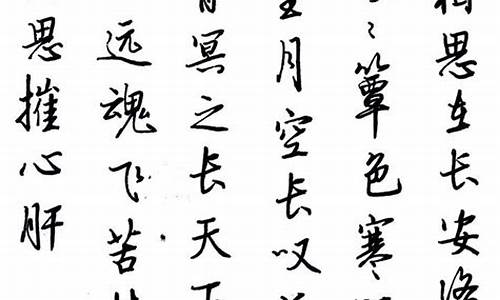 相思在长安络
簟色寒
月空长叹
青冥之长天下
远魂飞苦
思摧心肝